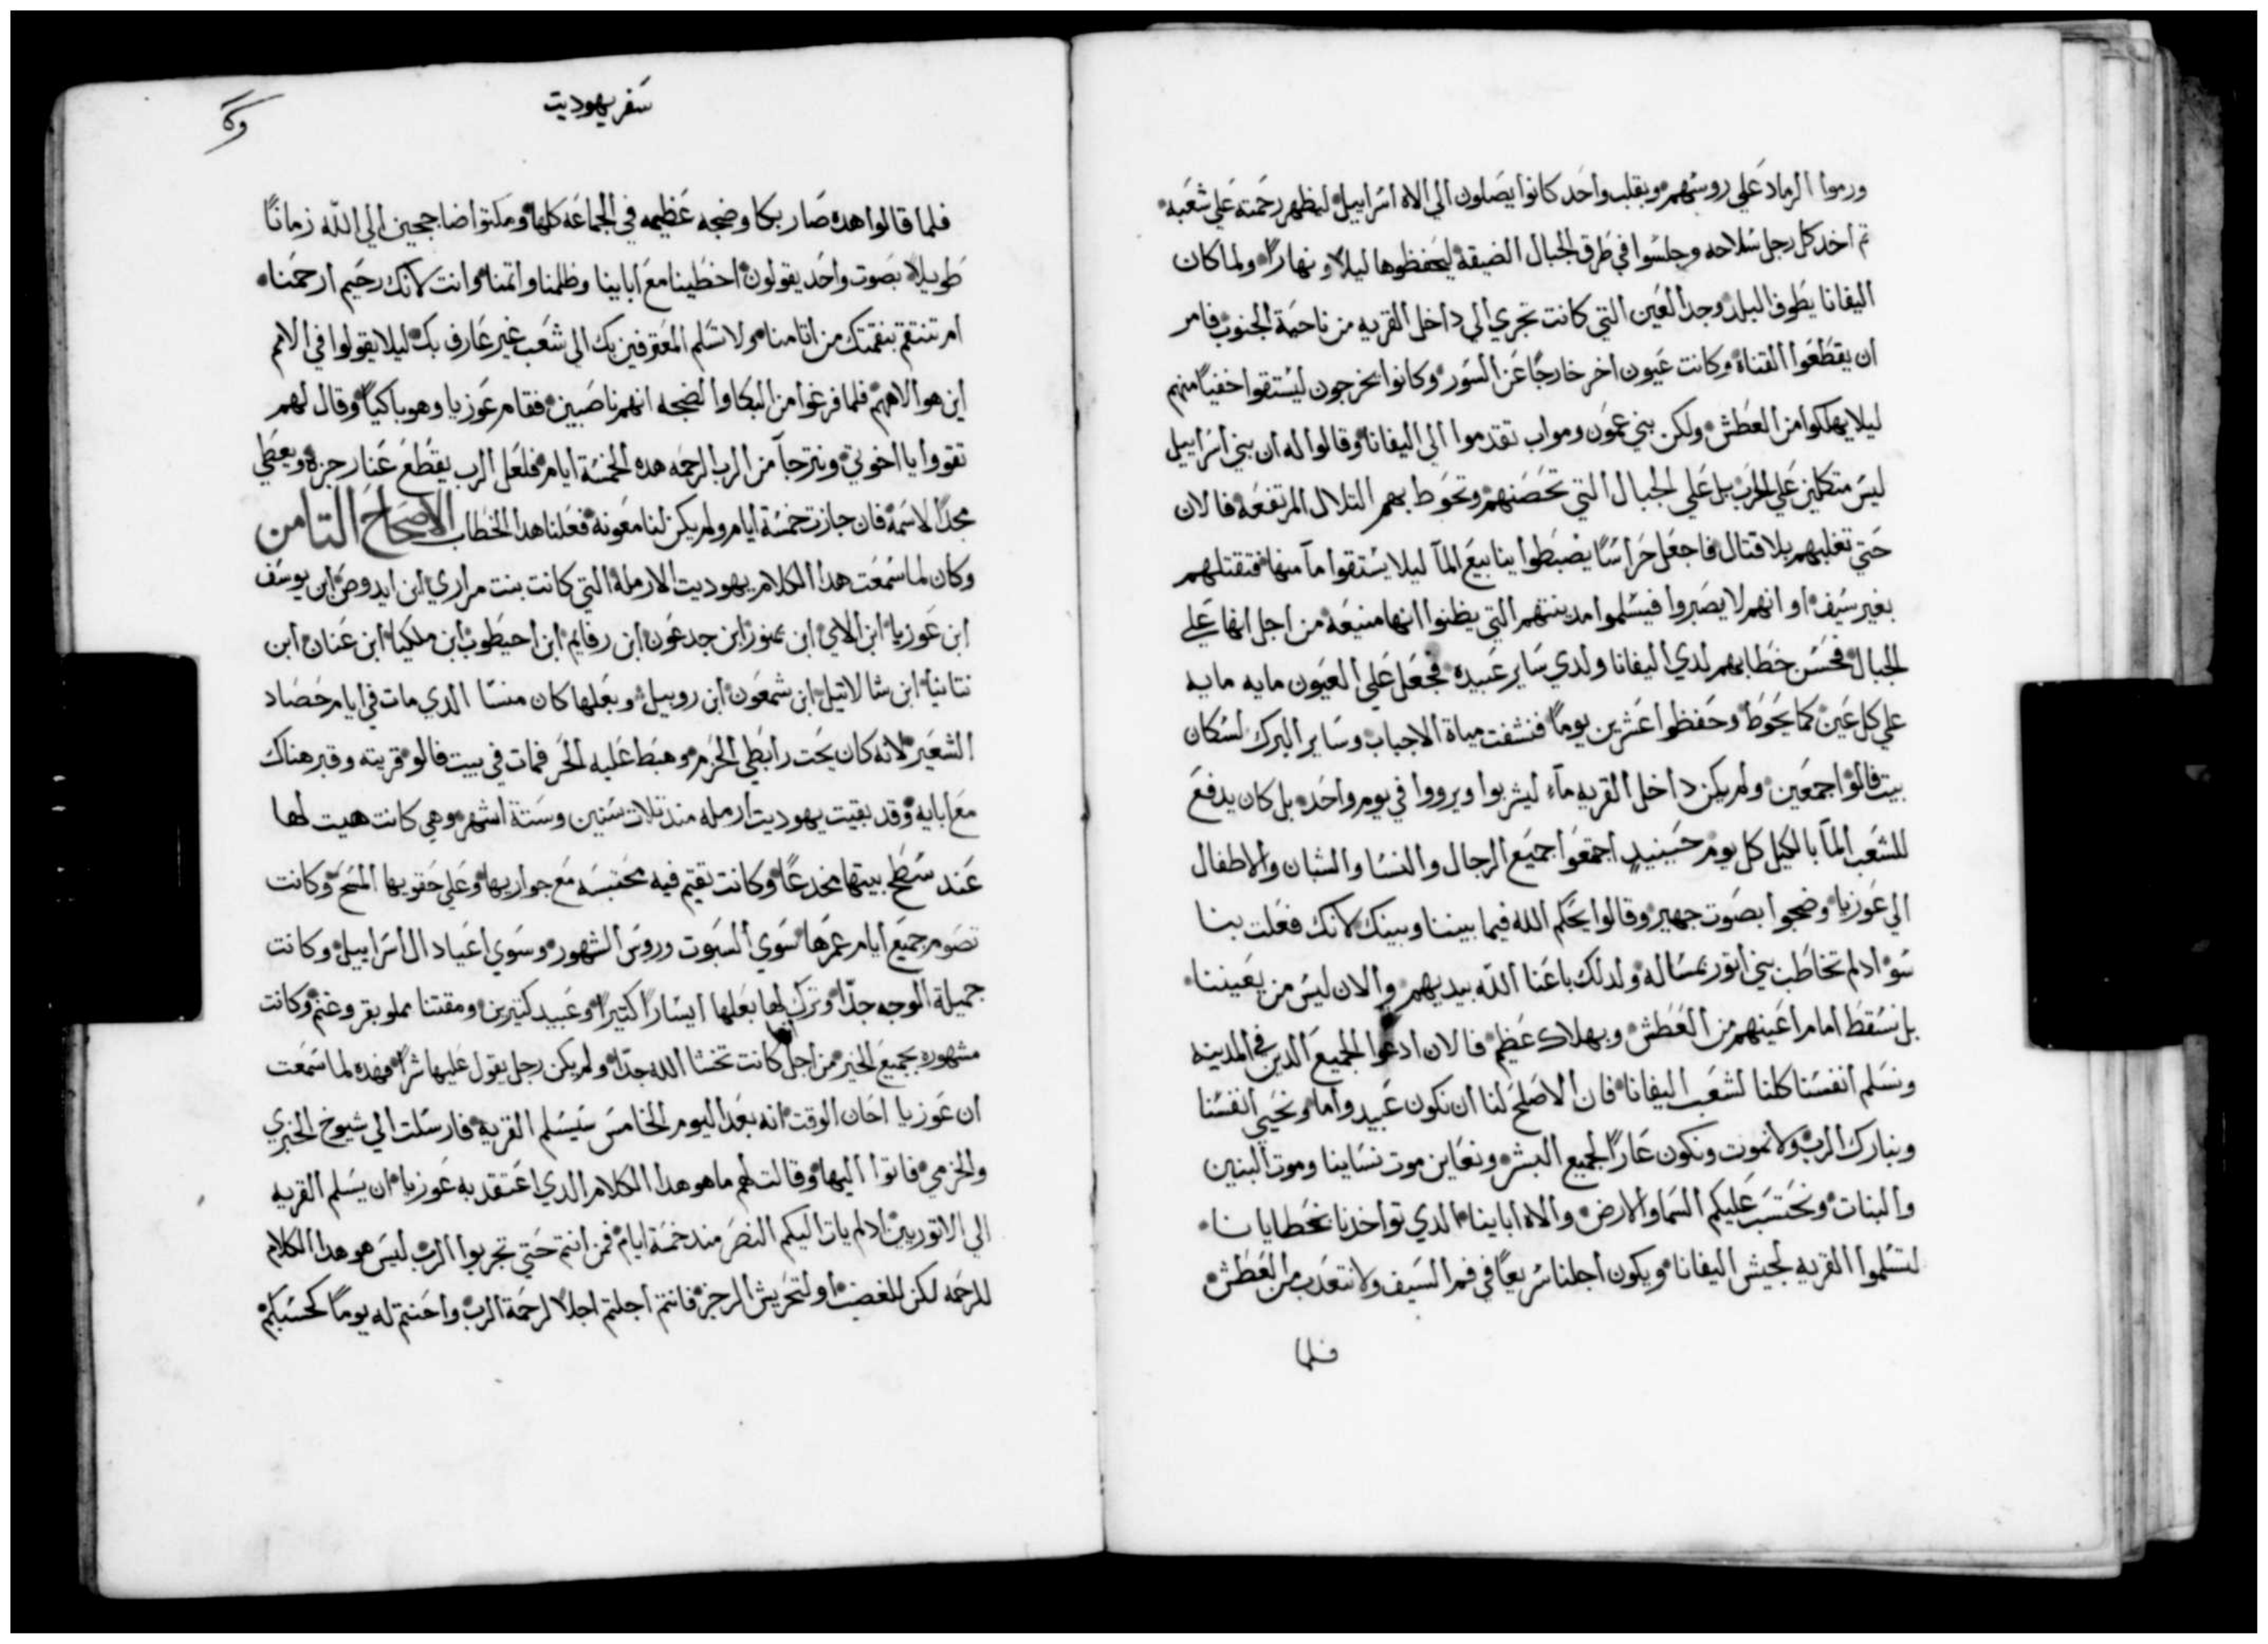 ورموا الرماد علي روسهم وبقلب واحد كانوا يصلون الي الاه اسراييل ليظهر رحمته علي شعبه
تم اخد كل رجل سلاحه وجلسوا في طرق الجبال الضيقة ليحفظوها ليلاً ونهاراً ولما كان
اليفانا يطوف البلد وجد العين التي كانت تجري الي داخل القريه من ناحية الجنوب فامر
ان يقطعوا القناة وكانت عيون اخر خارجًا عن السور وكانوا يخرجون ليستقوا خفيًا منهم
ليلا يهلكوا من العطش ولكن بني عمون ومواب تقدموا الي اليفانا وقالوا له ان بني اسراييل
ليس متكلين علي الحرب بل علي الجبال التي تحصنهم وتحوط بهم التلال المرتفعه فالان
حتي تغلبهم بلا قتال فاجعل حراسًا يضبطوا ينابيع المآ ليلا يستقوا مآ منها فتقتلهم
بغير سيف او انهم لا يصبروا فيسلموا مدينتهم التي يظنوا انها منيعة من اجل انها علي
الجبال فحسن خطابهم لدي اليفانا ولدي ساير عبيده فجعل علي العيون مايه مايه
علي كل عين كما يحوط وحفظوا عشرين يومًا فنشفت مياة الاجباب وساير البرك لسكان
بيت فالو اجمعين ولم يكن داخل القريه مآء ليشربوا ويرووا في يوم واحد بل كان يدفع
للشعب المآ بالكيل كل يوم حينيدٍ اجتمعوا جميع الرجال والنسا والشبان والاطفال
الي عوزيا وضجوا بصوت جهير وقالوا يحكم الله فيما بيننا وبينك لانك فعلت بنا
سو ادلم تخاطب بني اتور بمساله ولدلك باعنا الله بيديهم والان ليس من يعيننا
بل نسقط امام اعينهم من العطش وبهلاك عظيم فالان ادعوا لجميع الدين في المدينه
ونسلم انفسنا كلنا لشعب اليفانا فان الاصلح لنا ان نكون عبيد واما ونحيي انفسنا
ونبارك الرب ولا نموت ونكون عارًا لجميع البشر ونعاين موت نساينا وموت البنين
والبنات ونحتسب عليكم السما والارض والاه اباينا الدي تواخدنا بخطايانا
لتسلموا القريه لجيش اليفانا ويكون اجلنا سريعًا في فم السيف ولا نتعدب من العطش
فلما
سفر يهوديت
فلما قالوا هده صار بكا وضجه عظيمه في الجماعه كلها ومكتوا ضاججين الي الله زمانًا
طويلاً بصوت واحد يقولون اخطينا مع اباينا وظلمنا واتمنا وانت لانك رحيم ارحمنا
ام تنتقم بنقمتك من اتامنا ولا تسلم المعترفين بك الي شعب غير عارف بك ليلا يقولوا في الامم
اين هو الاههم فلما فرغوا من البكا والضجه انهم ناصبين فقام عوزيا وهو باكيًا وقال لهم
تقووا يا اخوتي ونترجآ من الرب الرحمه هده الخمسة ايام فلعل الرب يقطع عنا رجزه ويعطي
مجدًا لاسمه فان جازت خمسة ايام ولم يكن لنا معونه فعلنا هدا الخطاب الاصحاح التامن
وكان لما سمعت هدا الكلام يهوديت الارملة التي كانت بنت مراري ابن ايدوص ابن يوسف
ابن عوزيا ابن الاي ابن يمنور ابن جدعون ابن رفايم ابن احيطوب ابن ملكيا ابن عنان ابن
نتانيا ابن شالاتيل ابن شمعون ابن روبيل وبعلها كان منسّا الدي مات في ايام حصاد
الشعير لانه كان يحت رابطي الحزم وهبط عليه الحر فمات في بيت فالو قريته وقبر هناك
مع ابايه وقد بقيت يهوديت ارمله مند تلات سنين وستة اشهر وهي كانت هيت لها
عند سطح بيتها مخدعًا وكانت تقيم فيه محتبسه مع جواريها وعلي حقويها المسح وكانت
تصوم جميع ايام عمرها سوي السبوت وروس الشهور وسوي اعياد ال اسراييل وكانت
جميلة الوجه جدّا وترك لها بعلها ايسارًا كتيرًا وعبيد كتيرين ومقتنا مملو بقر وغنم وكانت
مشهوره بجميع الخير من اجل كانت تخشا الله جدّا ولم يكن رجل يقول عليها شرًا فهده لما سمعت
ان عوزيا احان الوقت انه بعد اليوم الخامس سيسلم القريه فارسلت الي شيوخ الخبري
والخرمي فاتوا اليها وقالت لهم ما هو هدا الكلام الدي اعتقد به عوزيا ان يسلم القريه
الي الاتوريين ادلم يات اليكم النصر مند خمسة ايام فمن انتم حتي تجربوا الرب ليس هو هدا الكلام
للرحمه لكن للغضب او لتحريش الرجز فانتم اجلتم اجلاً لرحمة الرب واحنتم له يومًا كحسبكم